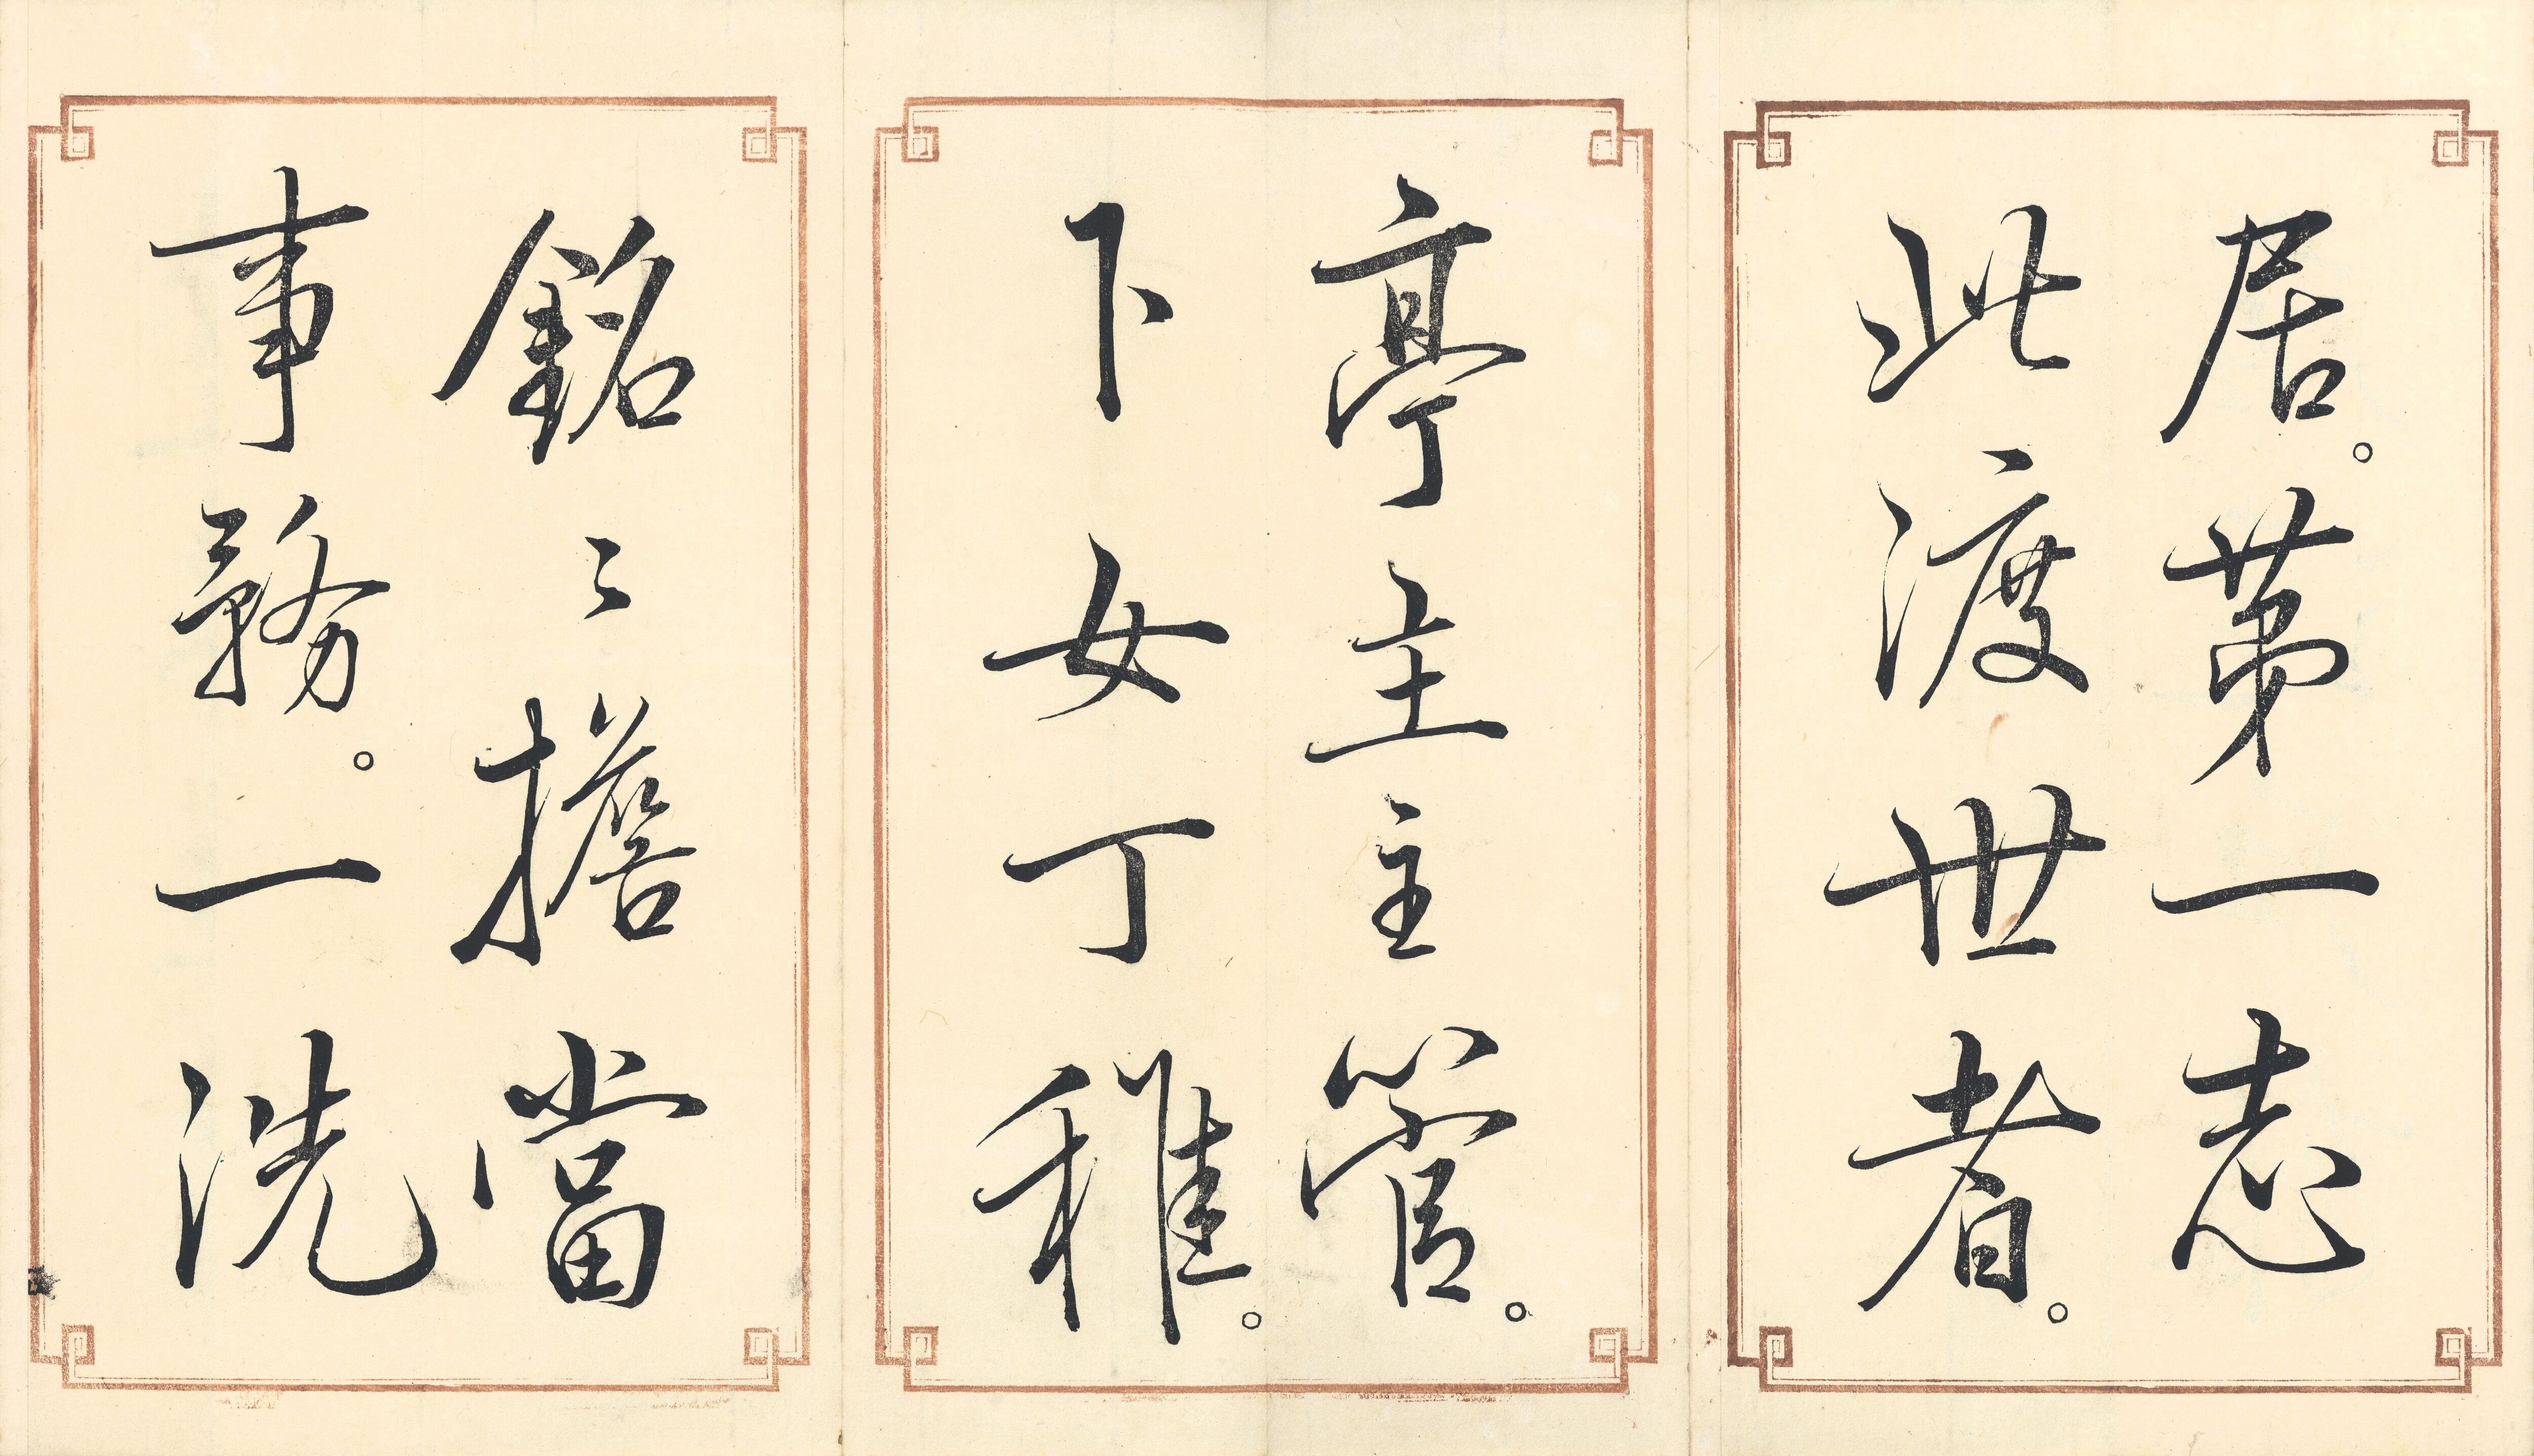 居。第一志
此渡世者。
亭主主管。
下女丁稚。
銘〻擔當
事務。一洗